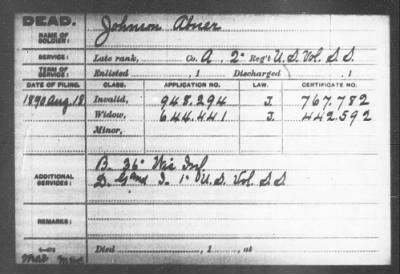 DEAD.
NAME OF SOLDIER: Johnson Abner
SERVICE: Late rank, Co. A, 2" Reg't U.S. Vol. S.S.
TERM OF SERVICE: Enlisted , 1 Discharged , 1
DATE OF FILING. CLASS. APPLICATION NO. LAW. CERTIFICATE NO.
1890 Aug. 18 Invalid, 948.294 J. 767.782
Widow, 644.441 J. 442.592
Minor,
ADDITIONAL SERVICES: B. 36" Wis Inf
D. G and I. 1" U.S. Vol. S.S.
REMARKS:
Died , 1 , at